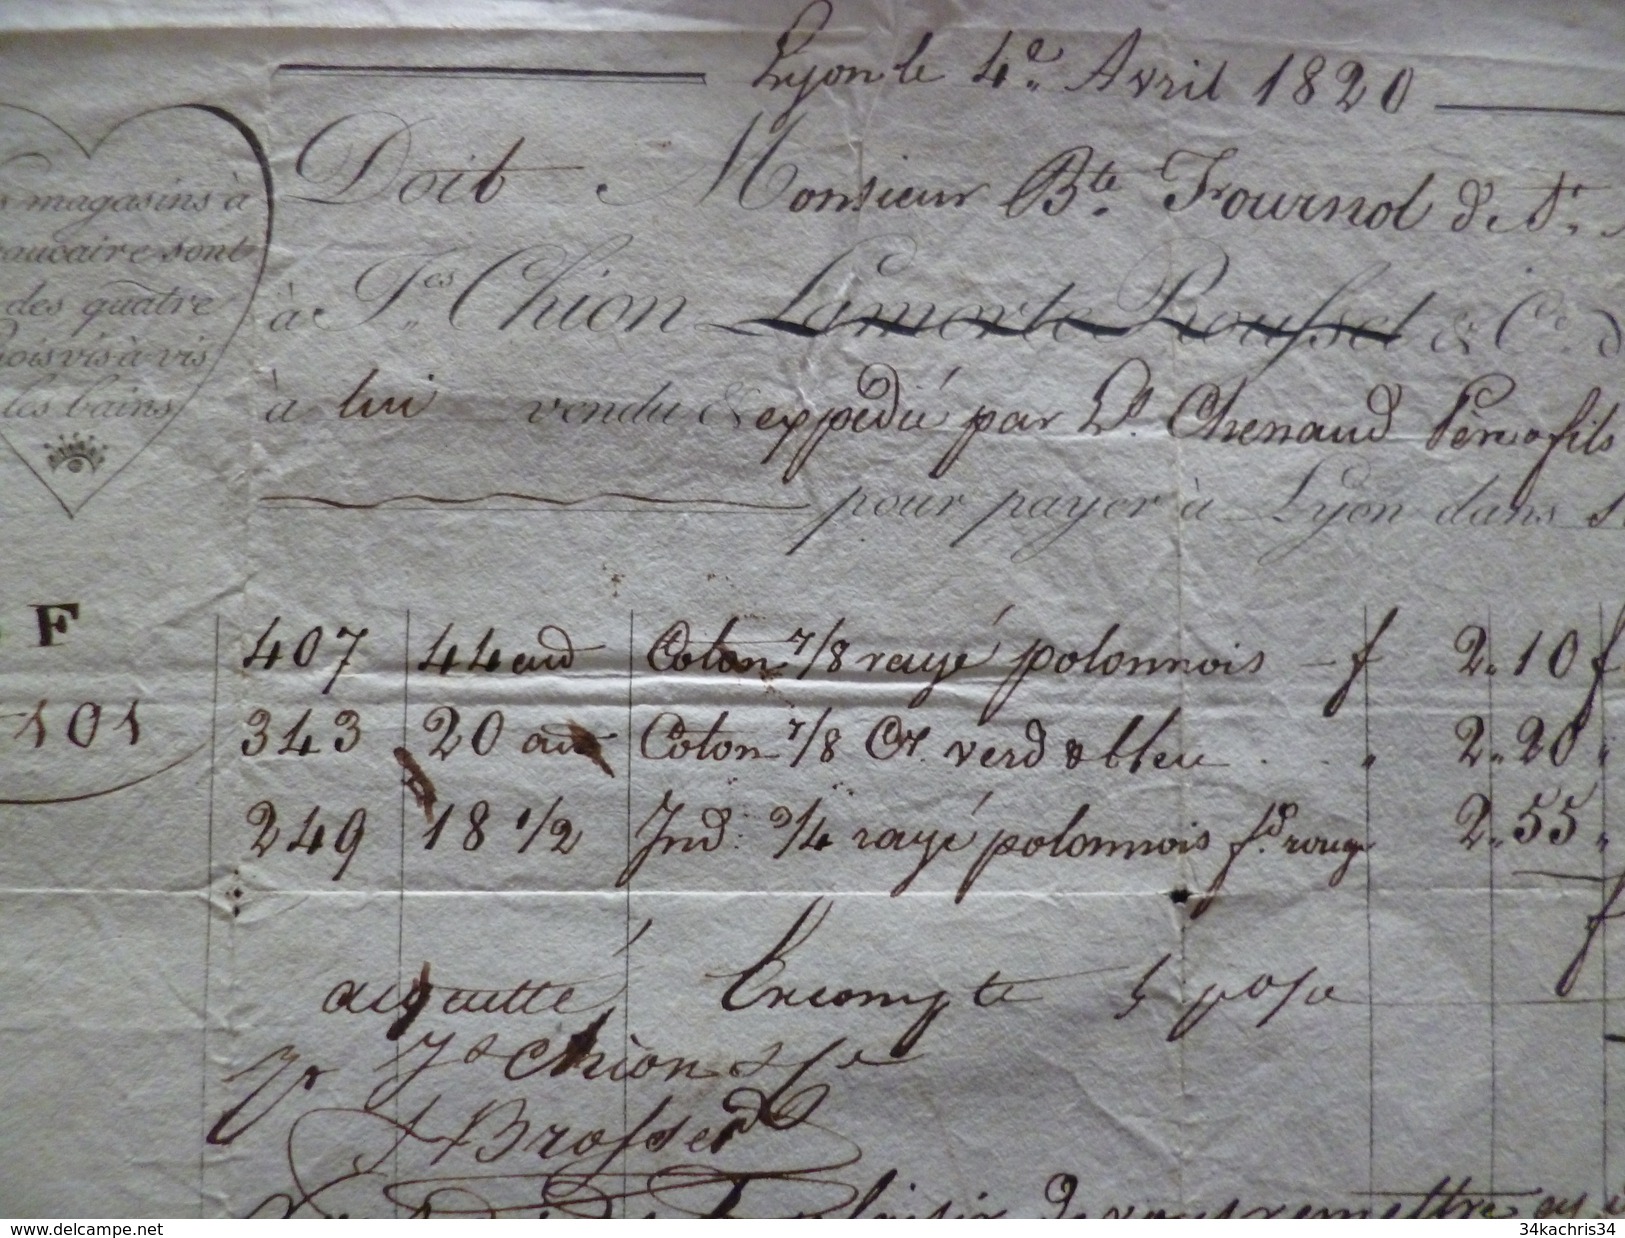 Lyon le 4e Avril 1820
magasins à
aucaire sont
des quatre
vis à vis
les bains
Doit Monsieur Bte. Fournol de St.
à Jes. Chion Lamorte Roussel & Ce.
à lui vendu & expédié par Chenaud Père & fils
pour payer à Lyon dans
F
101
407 44 aud Coton 7/8 rayé polonnois f 2.10 f
343 20 aud Coton 7/8 Cr. verd & bleu " 2.20 "
249 18 1/2 Ind: 3/4 rayé polonnois fd. rouge 2.55 "
f
acquitté Escompte
pr Js Chion & Ce
Brossard
plaisir de vous remettre
www.delcampe.net
34kachris34